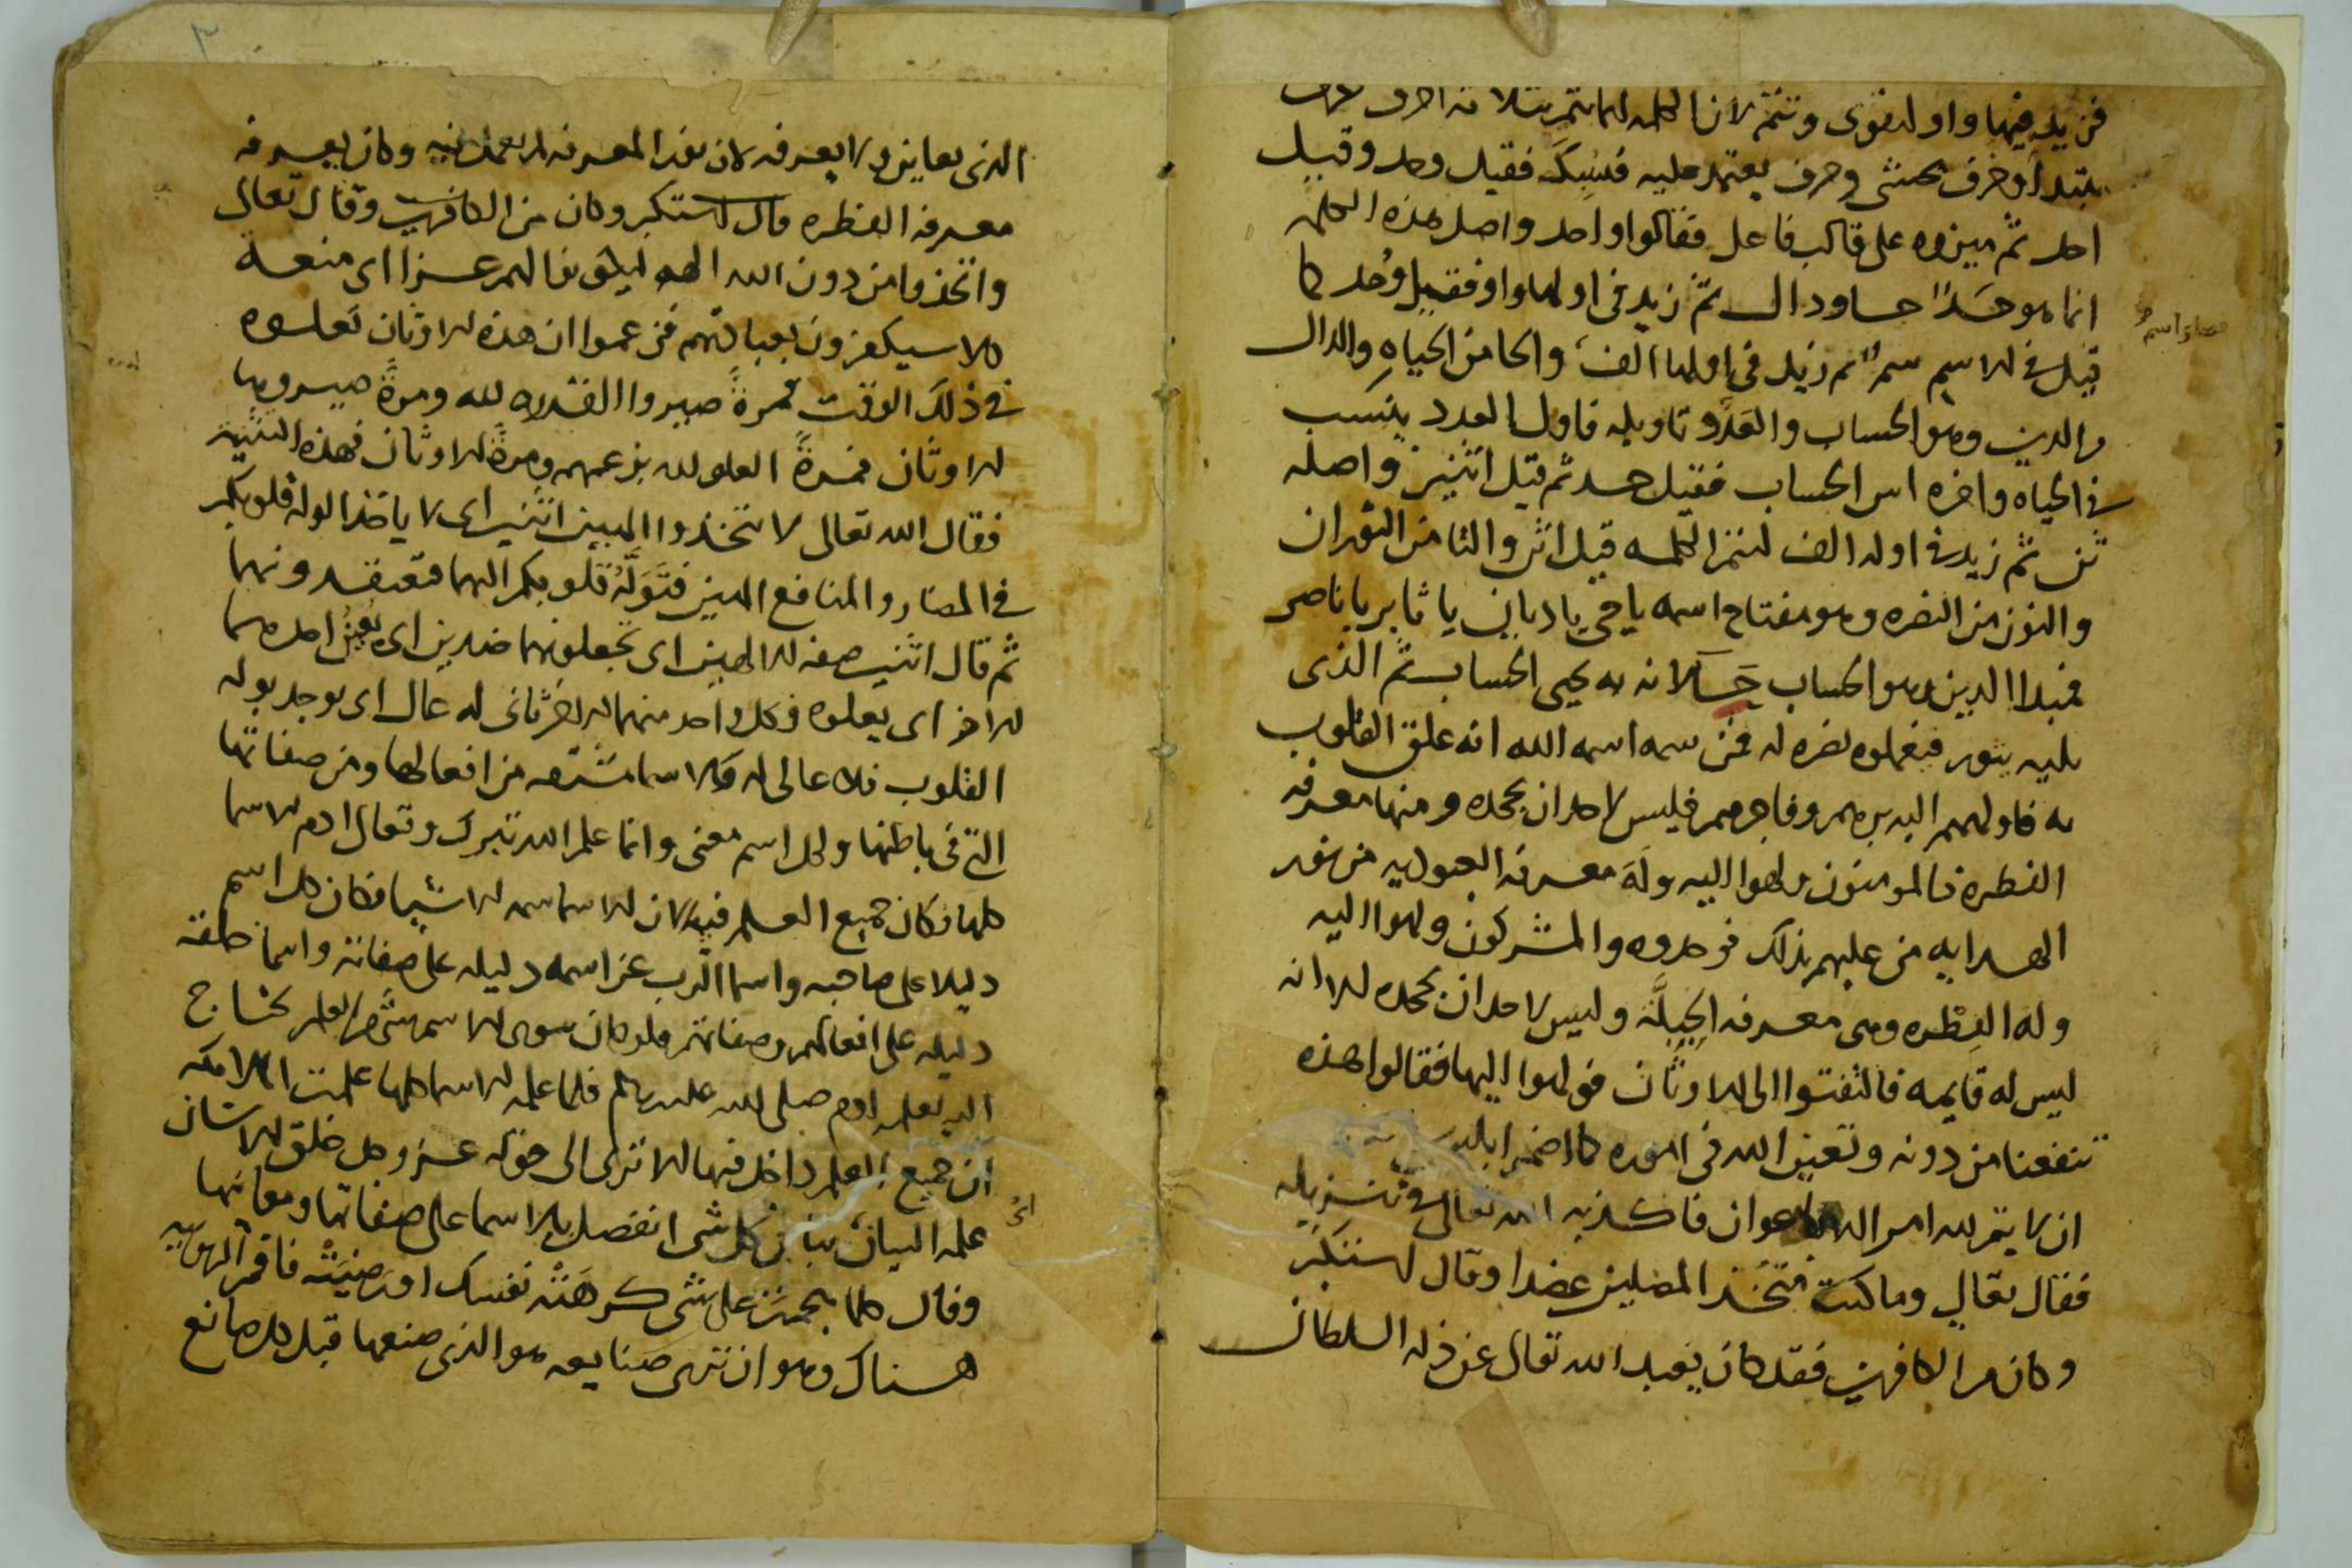 فزيد فيها واو لتقوى وتتم لان الكلمه انما تتم بثلاثه احرف حرف
يبتدا وحرف يحشى وحرف يعتمد عليه فيسكت فقيل وحد وقيل
احد ثم ميزوه على قالب فاعل فقالوا واحد واصل هذه الكلمه
انما هو حَدٌ حا ودال ثم زيد في اولها واو فقيل وُحد كما
قيل في الاسم سم ثم زيد في اولها الف والحا من الحياه والدال
من الدين وهو الحساب والعَدّ وتاويله فاول العدد ينسب
في الحياه واخره اس الحساب فقيل حد ثم قيل اثنين واصله
ثن ثم زيد في اوله الف لتتم الكلمه قيل اثن والثا من الثوران
والنون من النصره وهو مفتاح اسمه يا حي يا ديان يا ثابر يا ناصر
فمبدا الدين وهو الحساب حَيٌ لانه به يحيى الحساب ثم الذي
يليه يثور فيعلوه نصره له فمن سمه اسمه الله انه علق القلوب
به فاولهم البر برهم وفاجرهم فليس لاحد ان يجحده ومنها معرفه
الفطره فالمومنون ولهوا اليه وَلَهَ معرفه العبوديه من نور
الهدايه من عليهم بذلك فوحدوه والمشركون ولهوا اليه
وله الفِطْره وهي معرفه الجِبِلَّه وليس لاحد ان يجحده الا انه
ليس له قايمه فالتفتوا الى الاوثان فولهوا اليها فقالوا هذه
تنفعنا من دونه وتعين الله في اموره كما اضمر ابليس
ان لا يتم لله امر الا باعوان فاكذبه الله تعالى في تنزيله
فقال تعالى وما كنت متخذ المضلين عضدا وقال استكبر
وكان من الكافرين فقد كان يعبد الله تعالى عن ذله السلطان
الذي يعاين ولا يعرفه لان نور المعرفه لم يعمل فيه وكان يعرفه
معرفه الفطره قال استكبر وكان من الكافرين وقال تعالى
واتخذوا من دون الله الهه ليكونوا لهم عزا اي منعه
كلا سيكفرون بعبادتهم فزعموا ان هذه الاوثان تعلوه
في ذلك الوقت فمرةً صيروا القدره لله ومرةً صيروها
للاوثان فمرةً العلو لله بزعمهم ومرةً للاوثان فهذه التثنيه
فقال الله تعالى لا تتخذوا الهين اثنين اي لا ياخذ الوله قلوبكم
في المضار والمنافع الهين فتَوَلَّهُ قلوبكم اليهما فتعتقد ونهما
ثم قال اثنين صفه للالهين اي تجعلونهما ضدين اي يُعِينُ احدهما
الاخر اي يعلوه فكل واحد منهما للاخر ثاني له عال اي يوجد بوله
القلوب فلاه عالى له فالاسما مشتقه من افعالها ومن صفاتها
التي في باطنها ولكل اسم معنى وانما علم الله تبرك وتعالى ادم الاسما
كلها فكان جميع العلم فيها لان الاسما سمه الاشيا فكان كل اسم
دليلا على صاحبه واسما الرب عز اسمه دليله على صفاته واسما خلقه
دليله على افعالهم وصفاتهم ولو كان سوى الاسم شي من العلم يحتاج
اليه لعلمه ادم صلى الله عليه وسلم فلما علمه الاسما كلها علمت الملائكه
ان جميع العلم داخل فيها الا ترى الى قوله عز وجل خلق الانسان
علمه البيان بيان كل شي انفصل بالاسما على صفاتها ومعانيها
وقال كلما هجمت على شي كرهَتْه نفسك او رضيَتْه فاقم الربوبيه
هناك وهو ان ترى صنايعه هو الذي صنعها قبل كل صانع